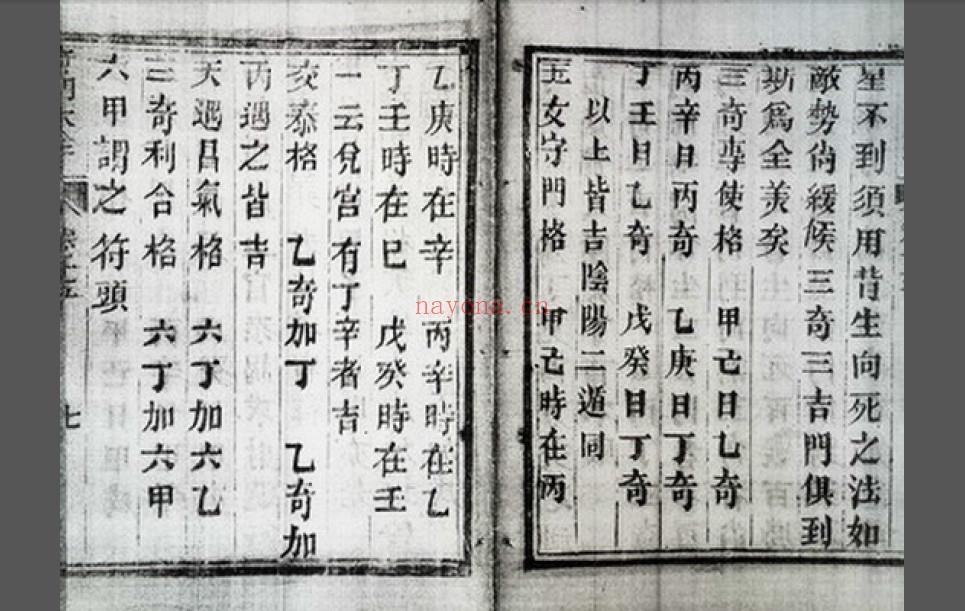 星不到須用背生向死之法如
敵勢尚緩候三奇三吉門俱到
斯爲全美矣
三奇專使格 甲己日乙奇
丙辛日丙奇 乙庚日丁奇
丁壬日乙奇 戊癸日丁奇
以上皆吉陰陽二遁同
玉女守門格 甲己時在丙
乙庚時在辛 丙辛時在乙
丁壬時在巳 戊癸時在壬
一云兌宮有丁辛者吉
交泰格 乙奇加丁 乙奇加
丙遇之皆吉
天遇昌氣格 六丁加六乙
三奇利合格 六丁加六甲
六甲謂之符頭
七
hayona.cn